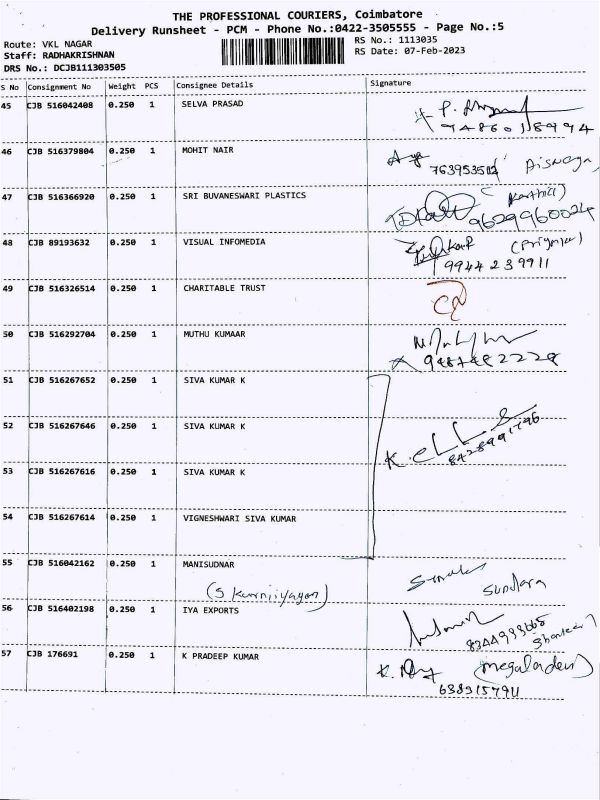 THE PROFESSIONAL COURIERS, Coimbatore
Delivery Runsheet - PCM - Phone No.:0422-3505555 - Page No.:5
Route: VKL NAGAR RS No.: 1113035
Staff: RADHAKRISHNAN RS Date: 07-Feb-2023
DRS No.: DCJB111303505
S No Consignment No Weight PCS Consignee Details Signature
45 CJB 516042408 0.250 1 SELVA PRASAD
9486018994
46 CJB 516379804 0.250 1 MOHIT NAIR
47 CJB 516366920 0.250 1 SRI BUVANESWARI PLASTICS
9629960024
48 CJB 89193632 0.250 1 VISUAL INFOMEDIA (Priynka)
9944239911
49 CJB 516326514 0.250 1 CHARITABLE TRUST
50 CJB 516292704 0.250 1 MUTHU KUMAAR
51 CJB 516267652 0.250 1 SIVA KUMAR K
52 CJB 516267646 0.250 1 SIVA KUMAR K
8428991796
53 CJB 516267616 0.250 1 SIVA KUMAR K
54 CJB 516267614 0.250 1 VIGNESHWARI SIVA KUMAR
55 CJB 516042162 0.250 1 MANISUDNAR
Sundara
56 CJB 516402198 0.250 1 IYA EXPORTS
57 CJB 176691 0.250 1 K PRADEEP KUMAR